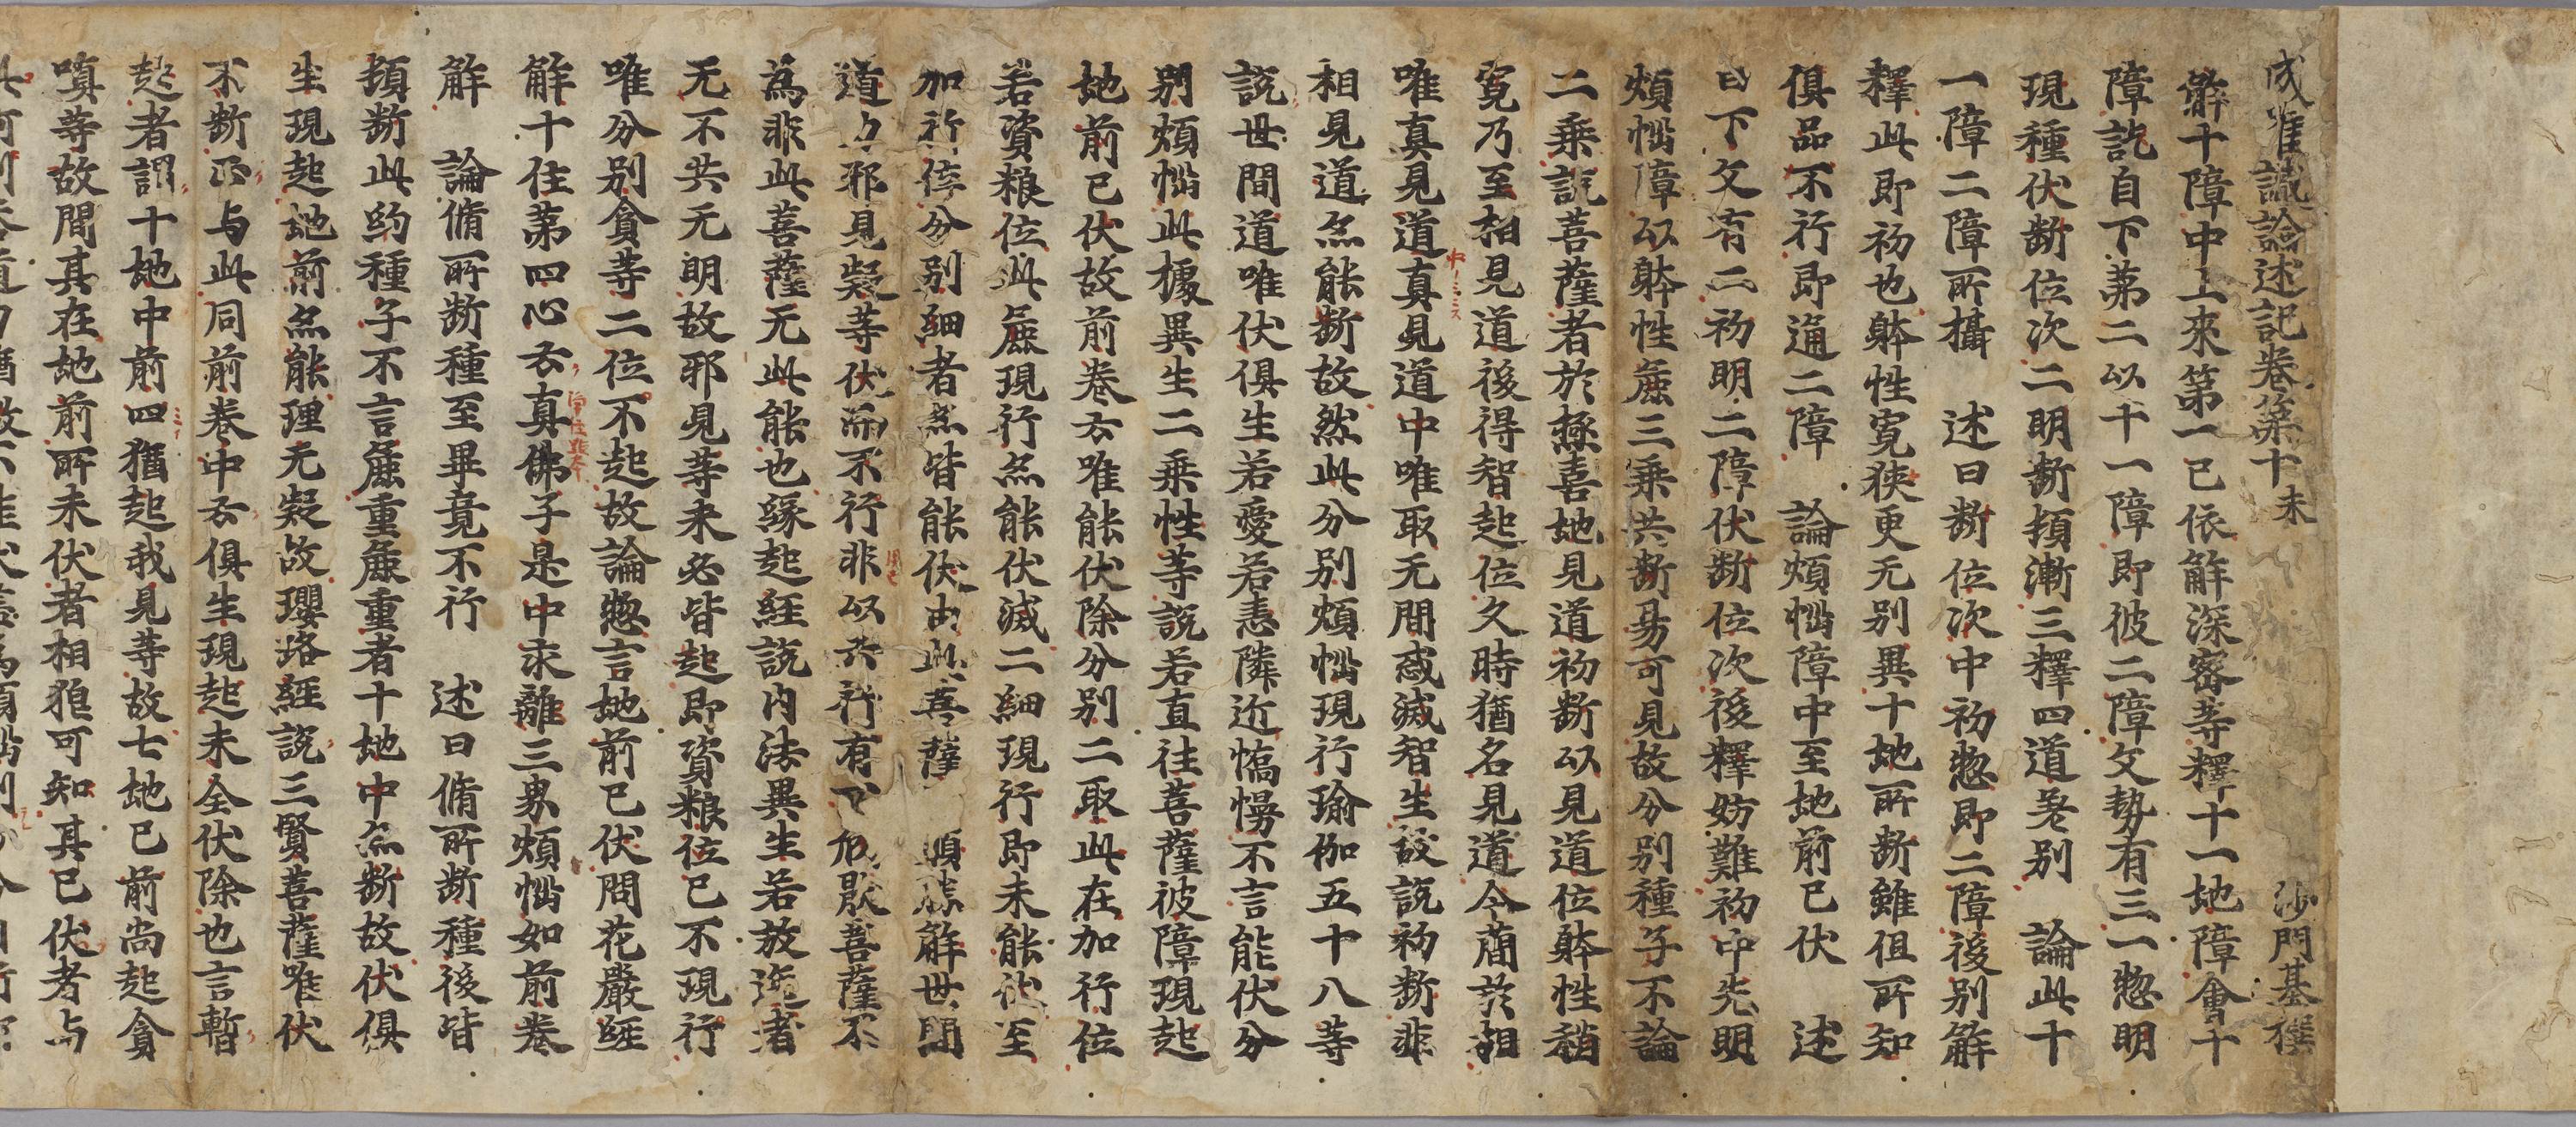 成唯識論述記卷第十末　沙門基撰
解十障中上來第一已依解深密等釋十一地障會十
障訖自下苐二以十一障即彼二障文勢有三一惣明
現種伏断位次二明断頓漸三釋四道差别　論此十
一障二障所攝　述曰断位次中初惣即二障後别解
釋此即初也躰性寬狹更无别異十地所断雖但所知
俱品不行即通二障　論煩惱障中至地前已伏　述
曰下文有二初明二障伏断位次後釋妨難初中先明
煩惱障以躰性麁三乘共断易可見故分别種子不論
二乘説菩薩者於極喜地見道初断以見道位躰性稍
寬乃至相見道後得智起位久時猶名見道今蕳於相
唯真見道真見道中唯取无間惑滅智生故説初断非
相見道亦能断故然此分别煩惱現行瑜伽五十八等
説世間道唯伏俱生若愛若恚隣近憍慢不言能伏分
别煩惱此據異生二乘性等説若直往菩薩彼障現起
地前已伏故前卷云唯能伏除分别二取此在加行位
若資粮位此麁現行亦能伏滅二細現行即未能伏至
加行位分别細者亦皆能伏由此菩薩　順勝解世間
道力邪見疑等伏而不行非以六行有下厭菩薩不
為非此菩薩无此能也緣起經説内法異生若放逸者
无不共无明故邪見等未必皆起即資粮位已不現行
唯分别貪等二位不起故論惣言地前已伏問花嚴經
解十住苐四心云真佛子是中求離三界煩惱如前卷
解　論脩所断種至畢竟不行　述曰脩所断種後皆
頓断此約種子不言麁重麁重者十地中亦断故伏俱
生現起地前亦能理无疑故瓔珞經説三賢菩薩唯伏
不断正与此同前卷中云俱生現起未全伏除也言暫
起者謂十地中前四猶起我見等故七地已前尚起貪
嗔等故間其在地前所未伏者相狼可知其已伏者与